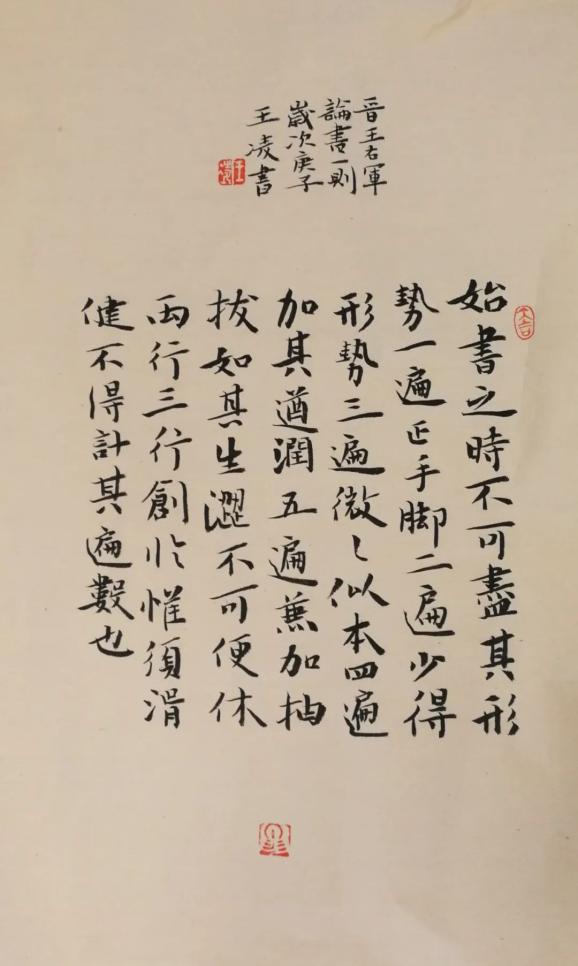 晋王右軍
論書一則
歲次庚子
王凌書
始書之時不可盡其形
勢一遍正手脚二遍少得
形勢三遍微〻似本四遍
加其遒潤五遍兼加抽
拔如其生澀不可便休
两行三行創臨惟須滑
健不得計其遍數也